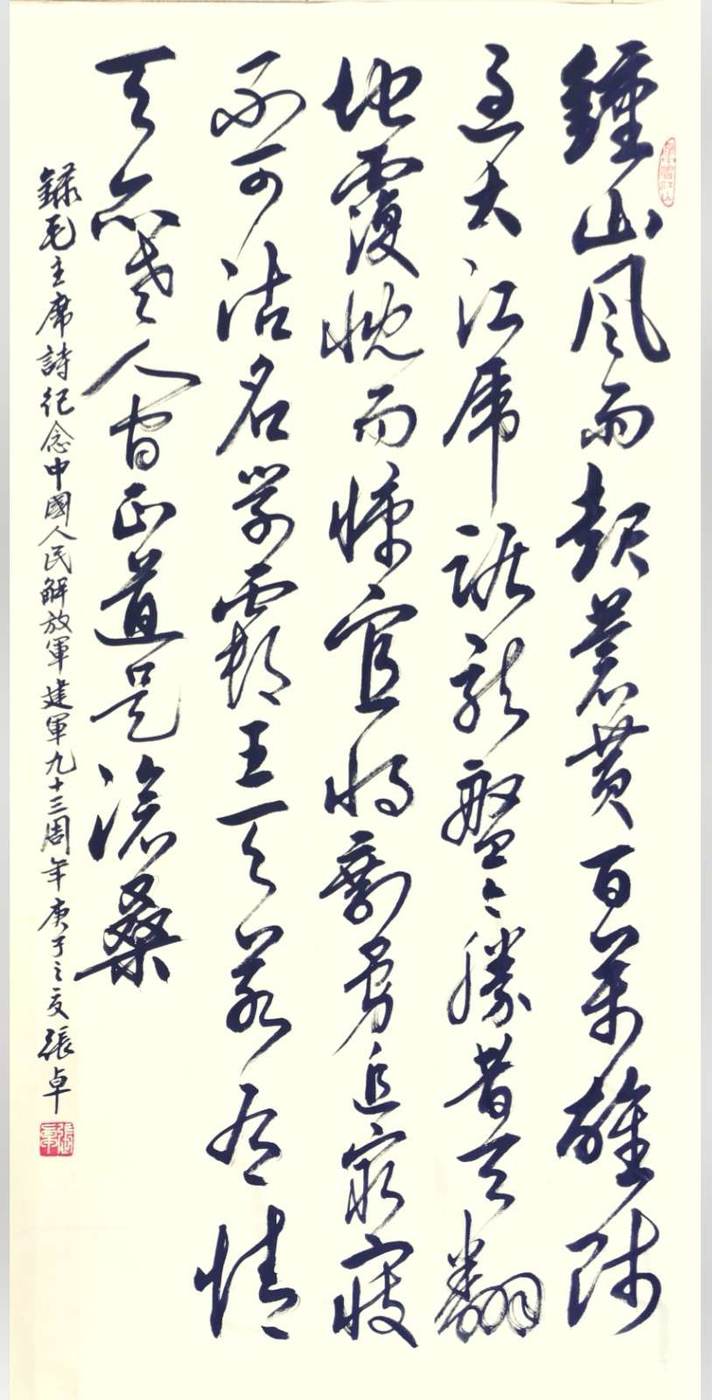 鍾山风雨起蒼黄百萬雄师
过大江虎踞龙盤今勝昔天翻
地覆慨而慷宜将剩勇追穷寇
不可沽名学霸王天若有情
天亦老人间正道是滄桑
録毛主席詩纪念中國人民解放軍建軍九十三周年庚子之夏張卓